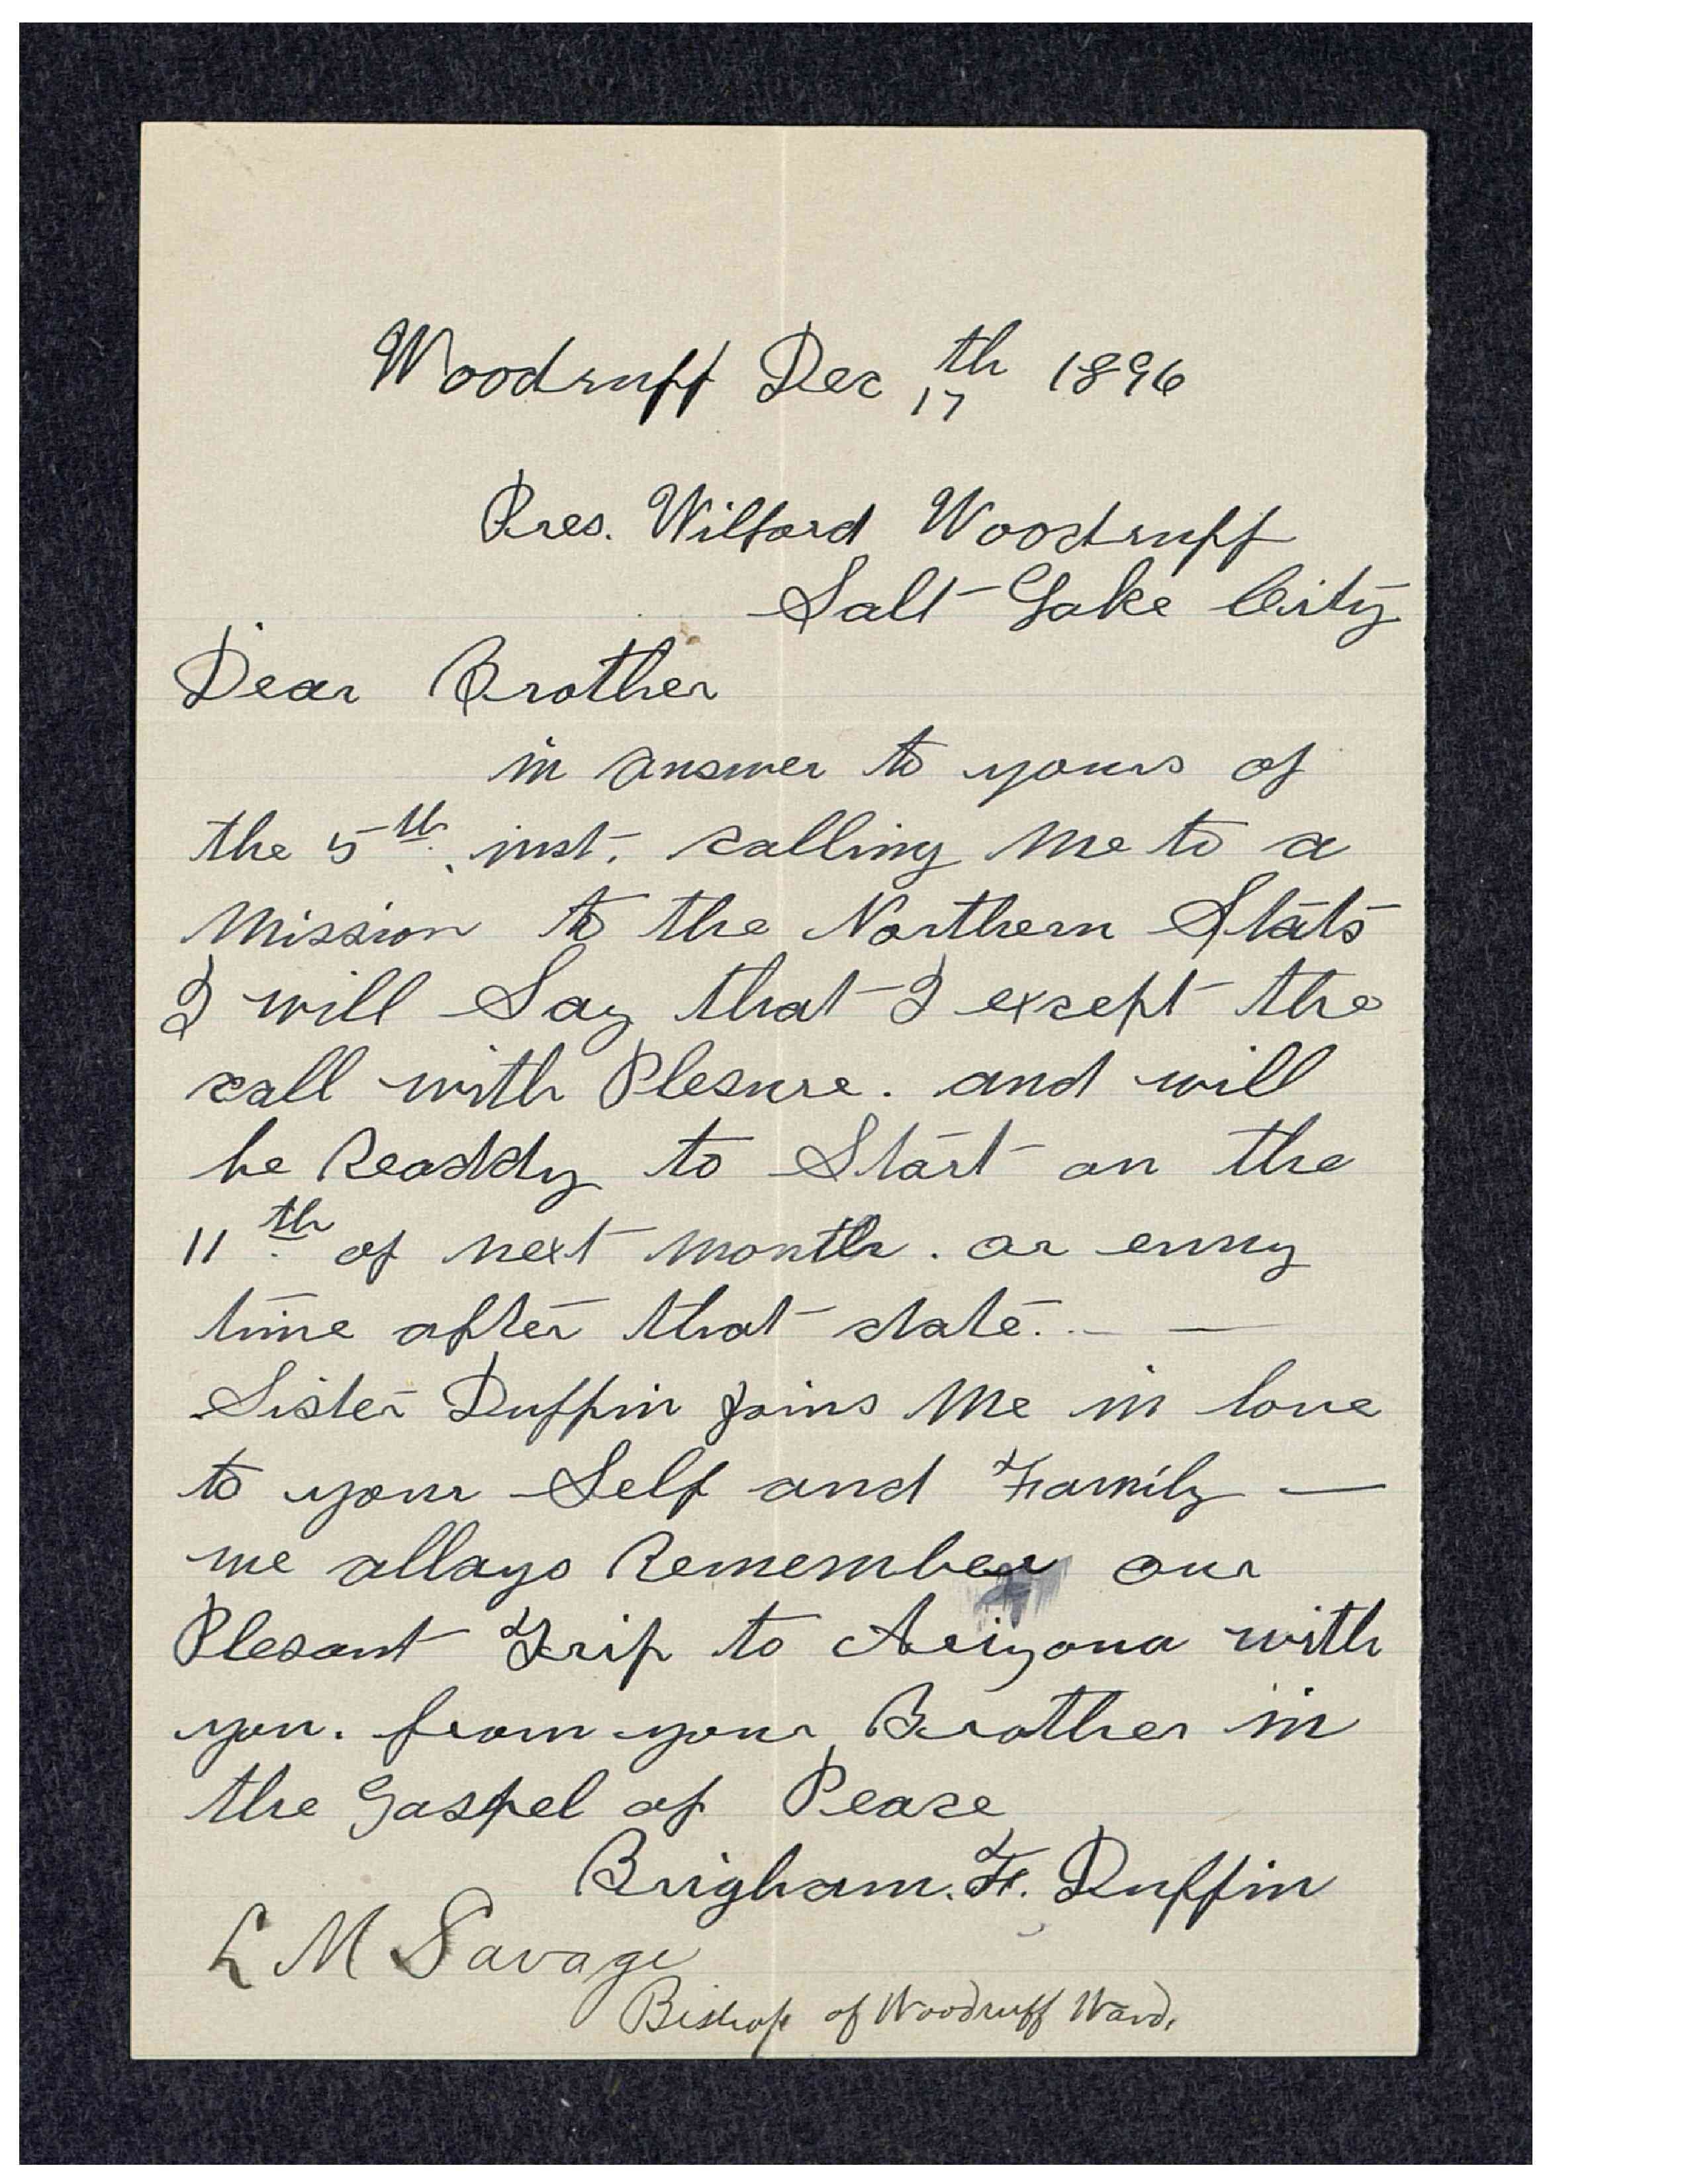 Woodruff Dec 17th 1896
Pres. Wilford Woodruff
Salt Lake City
Dear Brother
in answer to yours of
the 5th. inst. calling Me to a
Mission to the Northern Stats
I will Say that I except the
call with Plesure. and will
be Readdy to Start on the
11th. of next month. or enny
time after that date. — —
Sister Duffin Joins Me in love
to your Self and Family —
we allays Remember our
Plesant Trip to Arizona with
you. from your Brother in
the Gospel of Peace
Brigham. F. Duffin
L M Savage
Bishop of Woodruff Ward.